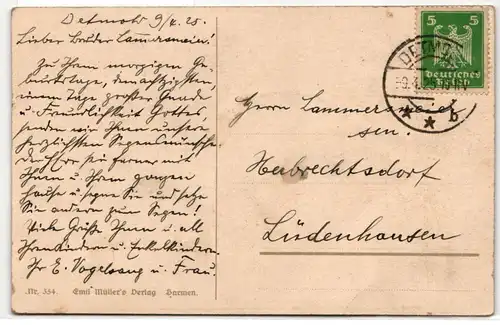 Detmold 9/4. 25.
Lieber Bruder Lammersmeier!
Zu Ihrem morgigen Ge-
burtstage, den achtzigsten,
einem Tage großer Gnade
u. Freundlichkeit Gottes,
senden wir Ihnen unsere
herzlichsten Segenswünsche.
Der Herr sei ferner mit
Ihnen u. Ihrem ganzen
Hause u. segne Sie und setze
Sie andern zum Segen!
Viele Grüße Ihnen u. all
Ihren Kindern u. Enkelkindern.
Ihr E. Vogelsang u. Frau.
Nr. 334. Emil Müller's Verlag Barmen.
5 5
Deutsches Reich
DETMOLD
9.4.25
* * b
Herrn Lammersmeier
sen.
Herbrechtsdorf
Lüdenhausen